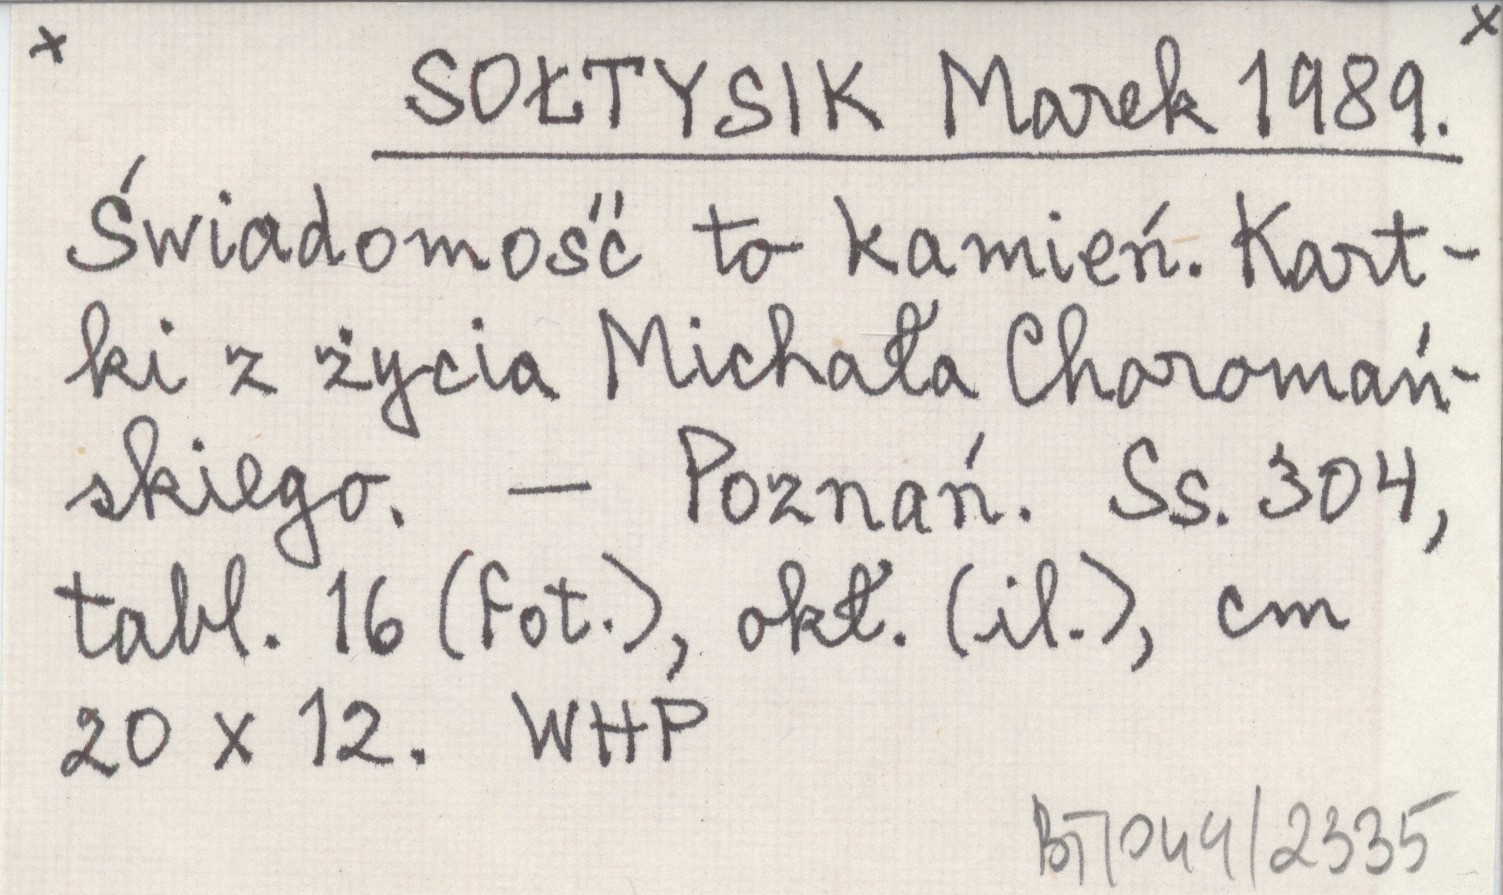 x x
SOŁTYSIK Marek 1989.
Świadomość to kamień. Kart-
ki z życia Michała Choromań-
skiego. — Poznań. Ss. 304,
tabl. 16 (fot.), okł. (il.), cm
20 x 12. WHP
BT/044/2335